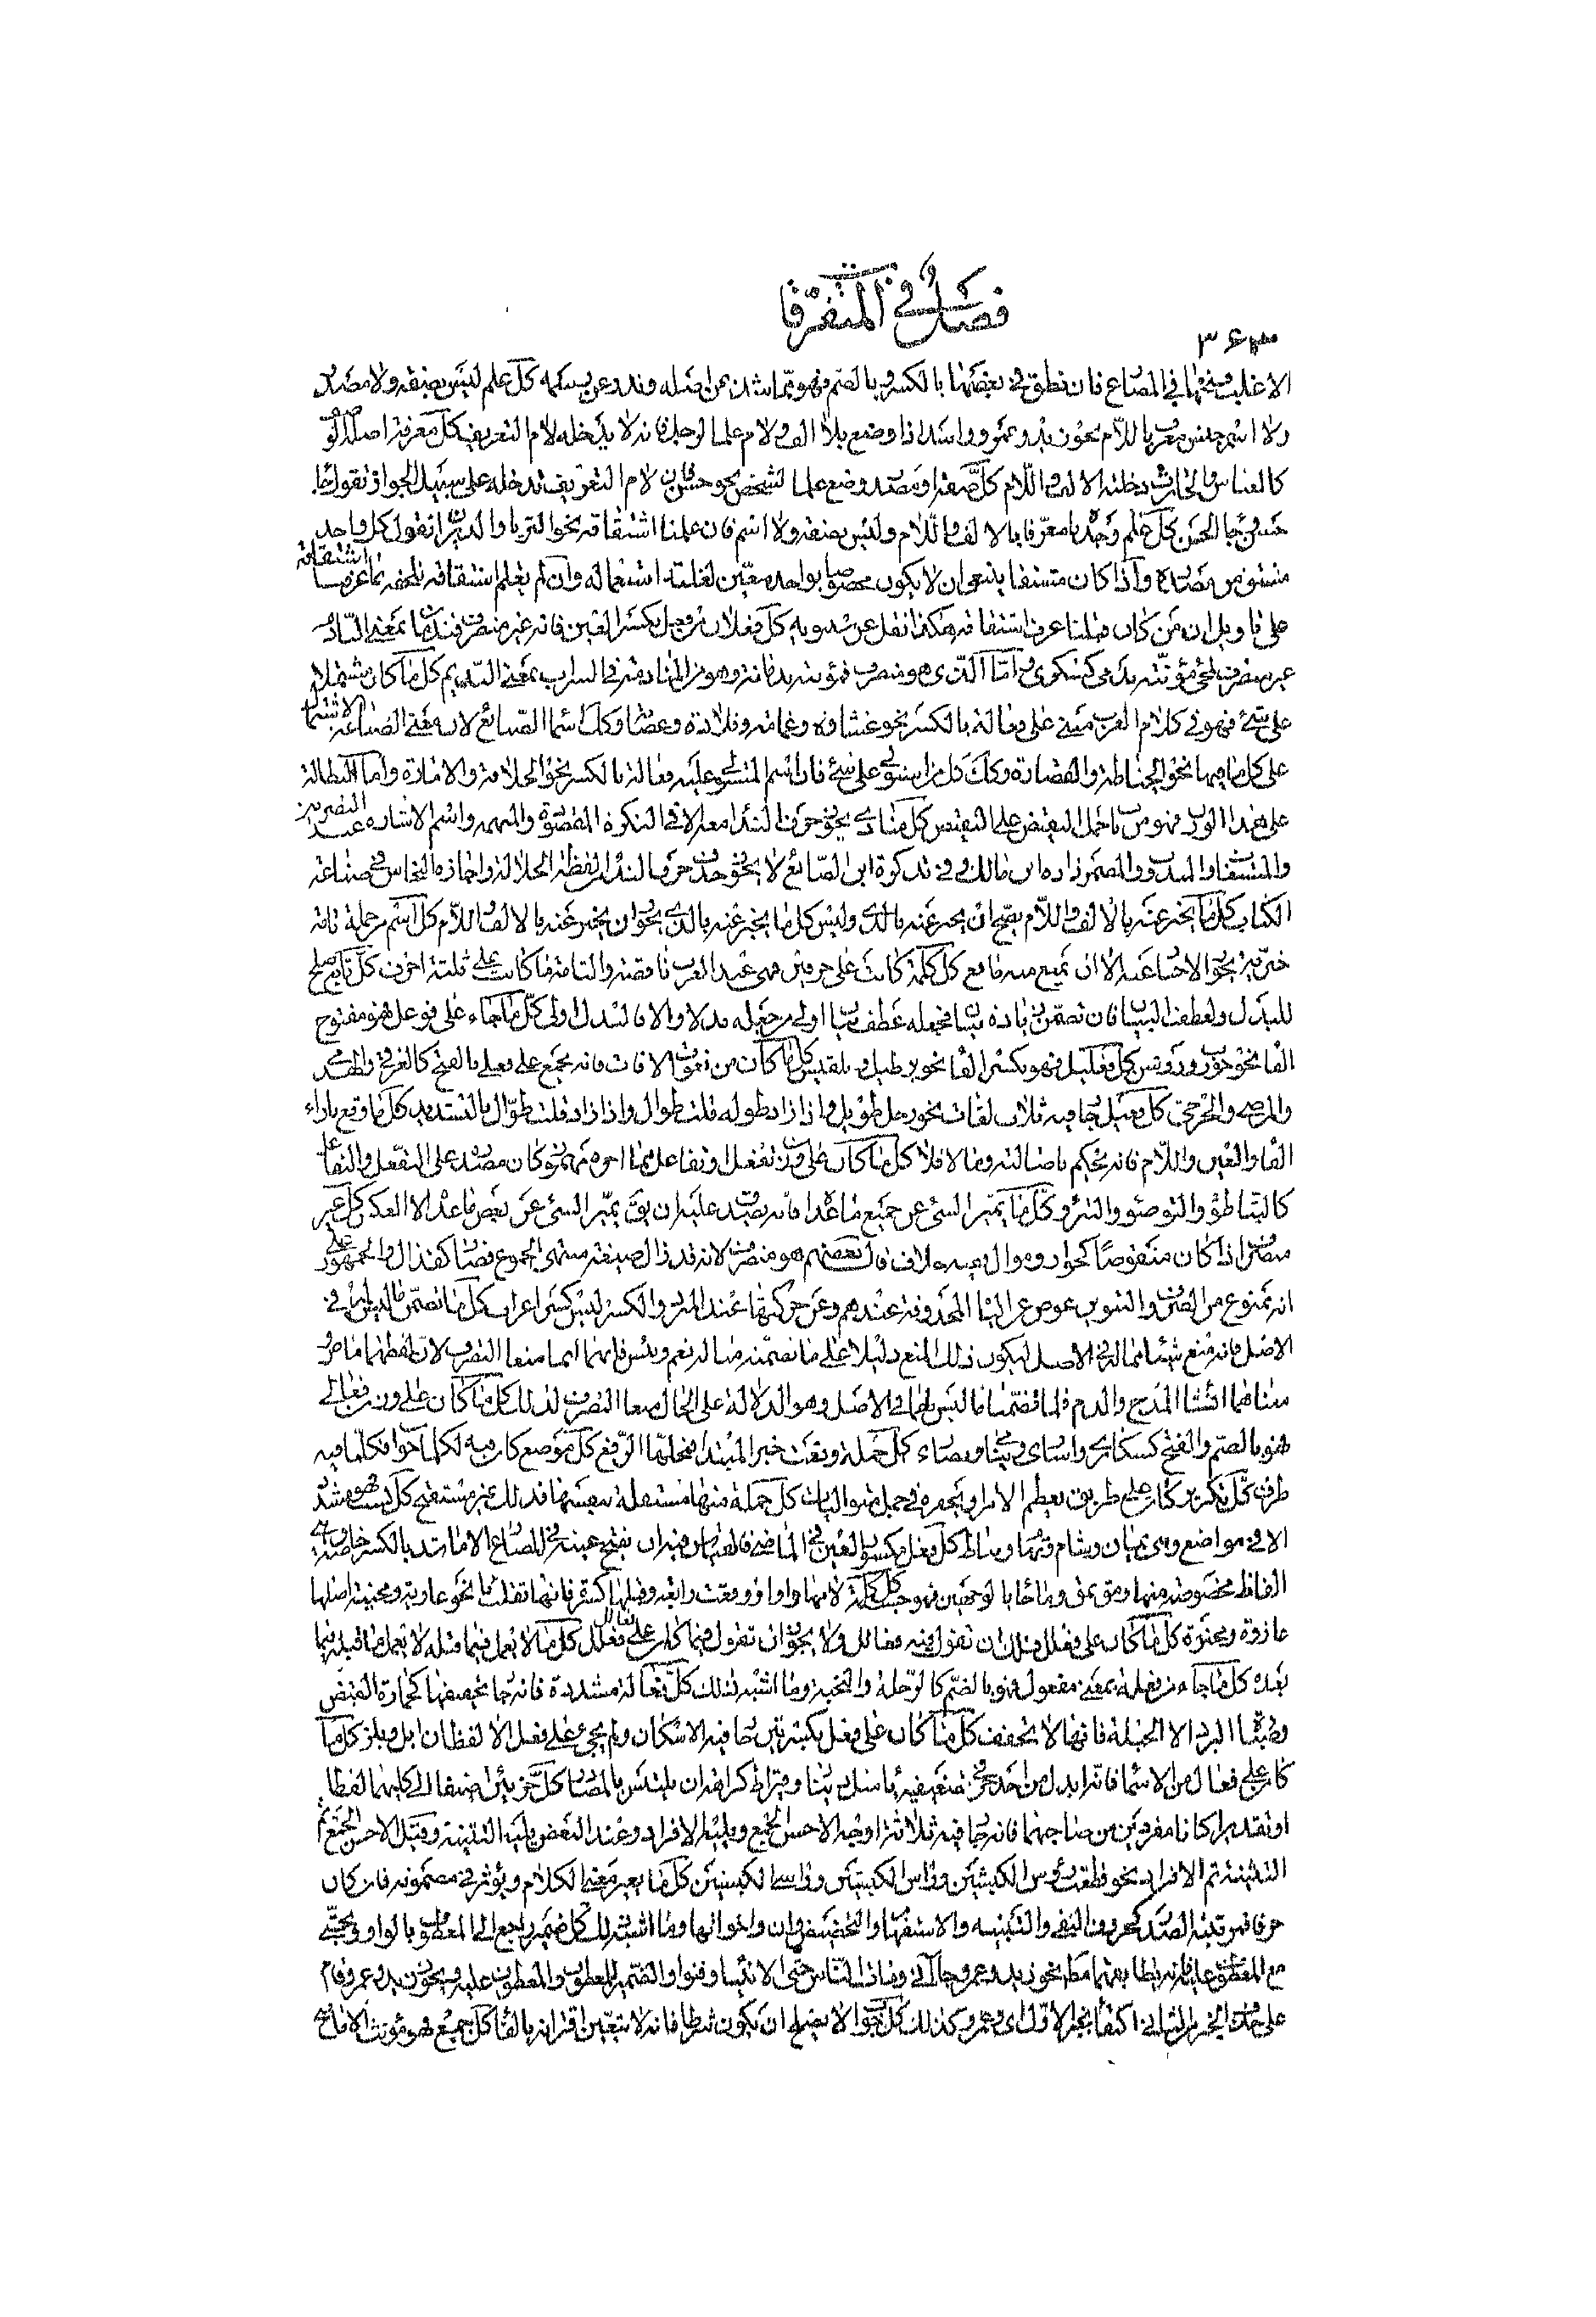 فصل في المتفرقات
٣٦٣
الاغلب فتحها في المضارع فان نطق في بعضها بالكسر و بالضم فهو مما شذ عن اصله وندر عن رسمه كل علم ليس بصفة ولا مصدر
ولا اسم جنس معرب باللام نحو زيد وعمرو واسد اذا وضع بلا الف ولام علما لواحد فانه لا يدخله لام التعريف كل معرفة اصلها
كالعباس والحارث دخلته الالف واللام كل صفة او مصدر وضع علما لشخص نحو حسن فان لام التعريف تدخله على سبيل الجواز تقول جاء
حسن وجاء الحسن كل علم وجد بامعرفا بالالف واللام وليس بصفة ولا اسم فان علمنا اشتقاقه نحو الثريا والدبران نقول كل واحد
مشتق من مصدره واذا كان مشتقا ينبغي ان لا يكون مخصوصا بواحد معين لغلبة استعماله وان لم يعلم اشتقاقه نلحقه بما عرفنا اشتقاقه
على تاويل ان من كان قبلنا عرف اشتقاقه هكذا نقل عن سيبويه كل فعلان من فعل بكسر العين فانه غير منصرف فندمان بمعنى النادم
غير منصرف لمجئ مؤنثه ندمى كسكرى واما الذي هو منصرف فمؤنثه ندمانة وهو من المنادمة في الشراب بمعنى النديم كل ما كان مشتملا
على شئ فهو في كلام العرب مبني على فعالة بالكسر نحو غشاوة وعمامة وقلادة وعصابة وكذا اسماء الصنائع لان معنى الصناعة الاشتمال
على كل ما فيها نحو الخياطة والقصارة وكذلك كل من استولى على شئ فان اسم المستولى عليه فعالة بالكسر نحو الخلافة والامارة واما البطالة
على هذا الوزن فهو من باب حمل النقيض على النقيض كل منادى يجوز حذف حرف الندا معه الا في النكرة المقصودة والمبهم واسم الاشارة عند البصريين
والمستغاث والمندوب والمضمر زاده ابن مالك وفي تذكرة ابن الصائغ لا يجوز حذف حرف الندا من لفظة الجلالة واجازه النحاس في صناعة
الكتاب كل ما يخبر عنه بالالف واللام يصح ان يخبر عنه بالذي وليس كل ما يخبر عنه بالذي يجوز ان يخبر عنه بالالف واللام كل اسم من جملة تامة
خبرية يجوز الاخبار عنه الا ان يمنع منه مانع كل كلمة كانت على حرفين فهي عند العرب ناقصة والتامة ما كانت على ثلثة احرف كل تابع صلح
للبدل ولعطف البيان فان تضمن زيادة بيان فجعله عطف بيان اولى من جعله بدلا والا فالبدل اولى كل ما جاء على فوعل فهو مفتوح
الفاء نحو جورب وروشن كل فعليل فهو بكسر الفاء نحو برطيل وبلقيس كل ما كان من نعوت الافات فانه يجمع على فعلى بالفتح كالغرقى والهلكى
والمرضى والجرحى كل فعيل جاء فيه ثلاث لغات نحو رجل طويل واذا زاد طوله قلت طوال واذا زاد قلت طوال بالتشديد كل ما وقع بازاء
الفاء والعين واللام فانه يحكم باصالته وما لا فلا كل ما كان على وزن تفعل او تفاعل مما اخره مهموز كان مصدره على التفعل والتفاعل
كالتباطؤ والتوضؤ والتبرؤ وكل ما يميز الشئ عن جميع ما عداه فانه يصدق عليه ان يق يميز الشئ عن بعض ما عداه لا العكس كل غير
منصرف اذا كان منقوصا كجوار وموال ففيه خلاف قال بعضهم هو منصرف لانه قد زال صيغة منتهى الجموع فصار كقذال والجمهور على
انه ممنوع من الصرف والتنوين عوض عن الياء المحذوفة عندهم وعن حركتها عند المبرد والكسر ليس كسر اعراب كل ما تضمن ما ليس له في
الاصل فانه منع شيئا مما له في الاصل ليكون ذلك المنع دليلا على ما تضمنه مثاله نعم وبئس فانهما انما منعا التصرف لان لفظهما ماض
معناهما انشاء المدح والذم فلما تضمنا ما ليس لهما في الاصل وهو الدلالة على الحال منعا التصرف لذلك كل ما كان على وزن فعالى
فهو بالضم والفتح كسكارى واسارى كل جملة وقعت خبر المبتدا فمحلها الرفع كل موضع كان فيه لكلما جواب فكلما فيه
ظرف كل تكرير كان على طريق تعظيم الامر او تحقيره في جمل متواليات كل جملة منها مستقلة بنفسها فذلك غير مستقبح
الا في مواضع وهي يمان وشام وتهام ورباط كل فعل مكسور العين في الماضي فالقياس فيه ان يفتح عينه في المضارع الا ما شذ بالكسر خاصة
الفاظ مخصوصة منها ومق يمق وما جاء بالوجهين فهو حسب كل كلمة لامها واوا او وقعت رابعة وقبلها كسرة فانها تقلب ياء نحو عادية ومحنية اصلها
عادوة ومحنوة كل ما كان على فعلل فلك ان تقول فيه فعالل ولا يجوز ان تقول فيما كان على فعالل فعلل كل ما لا يعمل فيما قبله لا يعمل ما قبله فيما
بعده كل ما جاء من فعلة بمعنى مفعول فهو بالضم كالرحلة والنخبة وما اشبه ذلك كل فعالة مشددة فانه جاء تخفيفها كحمارة القيظ
وصبارة البرد الا الحبالة فانها لا تخفف كل ما كان على فعل بكسرتين جاء فيه الاسكان ولم يجئ على فعل الا لفظان ابل وبلز كل ما
كان على فعال من الاسماء فانه ابدل من احد حرفي تضعيفه ياء مثل دينار وقيراط كراهة ان يلتبس بالمصادر كل جزئين اضيفا الى كليهما لفظا
او تقديرا وكانا مفردين من صاحبهما فانه جاء فيه ثلاثة اوجه الاحسن الجمع ويليه الافراد وعند البعض يليه التثنية وقيل الاحسن الجمع ثم
التثنية ثم الافراد نحو قطعت رؤس الكبشين وراس الكبشين وراسي الكبشين كل ما يغير معنى الكلام ويؤثر في مضمونه فان كان
حرفا فمرتبته الصدر كحروف النفي والتنبيه والاستفهام والتحضيض وان واخواتها وما اشبه ذلك كل ضمير راجع الى المعطوف بالواو وحتى
مع المعطوف عليه فانه يطابقهما مطلقا نحو زيد وعمرو جاآني ومات الناس حتى الانبياء وفنوا والضمير للمعطوف والمعطوف عليه ويجوز زيد وعمرو قام
على حذف الخبر من الثاني اكتفاء بخبر الاول اي وعمرو كذلك كل جواب لا يصلح ان يكون شرطا فانه لا يتعين اقترانه بالفاء كل جمع فهو مؤنث الا ما